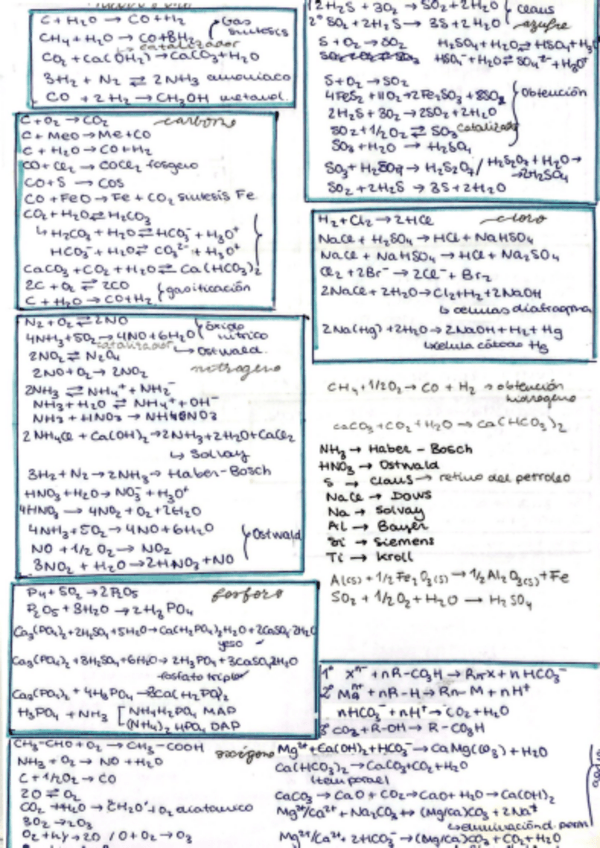 C + H₂O → CO + H₂
CH₄ + H₂O → CO + 3H₂
Gas síntesis
catalizador
CO₂ + Ca(OH₂) → CaCO₃ + H₂O
3H₂ + N₂ ⇄ 2NH₃ amoniaco
CO + 2H₂ → CH₃OH metanol
C + O₂ → CO₂ carbono
C + MeO → Me + CO
C + H₂O → CO + H₂
CO + Cl₂ → COCl₂ fosgeno
CO + S → COS
CO + FeO → Fe + CO₂ síntesis Fe
CO₂ + H₂O ⇄ H₂CO₃
↳ H₂CO₃ + H₂O ⇄ HCO₃⁻ + H₃O⁺
HCO₃⁻ + H₂O ⇄ CO₃²⁻ + H₃O⁺
CaCO₃ + CO₂ + H₂O ⇄ Ca(HCO₃)₂
2C + O₂ ⇄ 2CO
C + H₂O → CO + H₂
gasificación
N₂ + O₂ ⇄ 2NO
4NH₃ + 5O₂ → 4NO + 6H₂O
óxido nítrico
catalizador → Ostwald
2NO₂ ⇄ N₂O₄
2NO + O₂ → 2NO₂ nitrógeno
2NH₃ ⇄ NH₄⁺ + NH₂⁻
NH₃ + H₂O ⇄ NH₄⁺ + OH⁻
NH₃ + HNO₃ → NH4NO3
2NH₄Cl + Ca(OH)₂ → 2NH₃ + 2H₂O + CaCl₂
↳ Solvay
3H₂ + N₂ → 2NH₃ → Haber-Bosch
HNO₃ + H₂O → NO₃⁻ + H₃O⁺
4HNO₃ → 4NO₂ + O₂ + 2H₂O
4NH₃ + 5O₂ → 4NO + 6H₂O
NO + 1/2 O₂ → NO₂
3NO₂ + H₂O → 2HNO₃ + NO
Ostwald
P₄ + 5O₂ → 2P₂O₅ fósforo
P₂O₅ + 3H₂O → 2H₃PO₄
Ca₃(PO₄)₂ + 2H₂SO₄ + 5H₂O → Ca(H₂PO₄)₂H₂O + 2CaSO₄·2H₂O
yeso
Ca₃(PO₄)₂ + 3H₂SO₄ + 6H₂O → 2H₃PO₄ + 3CaSO₄2H₂O
fosfato triple
Ca₃(PO₄)₂ + 4H₃PO₄ → 3Ca(H₂PO₄)₂
H₃PO₄ + NH₃ [ NH₄H₂PO₄ MAP
(NH₄)₂HPO₄ DAP
CH₃-CHO + O₂ → CH₃-COOH oxígeno
NH₃ + O₂ → NO + H₂O
C + 1/2O₂ → CO
2O ⇄ O₂
3O₂ → 2O₃
O₂ + hγ → 2O / O + O₂ → O₃
2H₂S + 3O₂ → SO₂ + 2H₂O
2° SO₂ + 2H₂S → 3S + 2H₂O
claus
azufre
S + O₂ → SO₂
H₂SO₄ + H₂O ⇄ HSO₄⁻ + H₃O⁺
HSO₄⁻ + H₂O ⇄ SO₄²⁻ + H₃O⁺
S + O₂ → SO₂
4FeS₂ + 11O₂ → 2Fe₂SO₃ + 8SO₂
2H₂S + 3O₂ → 2SO₂ + 2H₂O
SO2 + 1/2O₂ ⇄ SO₃ catalizador
SO₃ + H₂O → H₂SO₄
Obtención
SO₃ + H₂SO₄ → H₂S₂O₇ / H₂S₂O₇ + H₂O → 2H₂SO₄
SO₂ + 2H₂S → 3S + 2H₂O
H₂ + Cl₂ → 2HCl cloro
NaCl + H₂SO₄ → HCl + NaHSO₄
NaCl + NaHSO₄ → HCl + Na₂SO₄
Cl₂ + 2Br⁻ → 2Cl⁻ + Br₂
2NaCl + 2H₂O → Cl₂ + H₂ + 2NaOH
↳ células diafragma
2Na(Hg) + 2H₂O → 2NaOH + H₂ + Hg
↳ célula cátodo Hg
CH₄ + 1/2O₂ → CO + H₂ → obtención hidrogeno
CaCO₃ + CO₂ + H₂O → Ca(HCO₃)₂
NH₃ → Haber - Bosch
HNO₃ → Ostwald
S → Claus → refino del petroleo
NaCl → Dows
Na → Solvay
Al → Bayer
Si → Siemens
Ti → Kroll
Al(s) + 1/2 Fe₂O₃(s) → 1/2 Al₂O₃(s) + Fe
SO₂ + 1/2O₂ + H₂O → H₂SO₄
1° xⁿ⁻ + nR-CO₃H → Rn-x + nHCO₃⁻
2° Mⁿ⁺ + nR-H → Rn-M + nH⁺
nHCO₃⁻ + nH⁺ → CO₂ + H₂O
3° CO₂ + R-OH → R-CO₃H
Mg²⁺ + Ca(OH)₂ + HCO₃⁻ → CaMg(CO₃) + H₂O
Ca(HCO₃)₂ → CaCO₃ + CO₂ + H₂O
(temporal)
CaCO₃ → CaO + CO₂ → CaO + H₂O → Ca(OH)₂
Mg²⁺/Ca²⁺ + Na₂CO₃ ↔ (Mg/Ca)CO₃ + 2Na⁺
↳ eliminación d. perm
Mg²⁺/Ca²⁺ + 2HCO₃⁻ → (Mg/Ca)CO₃ + CO₂ + H₂O